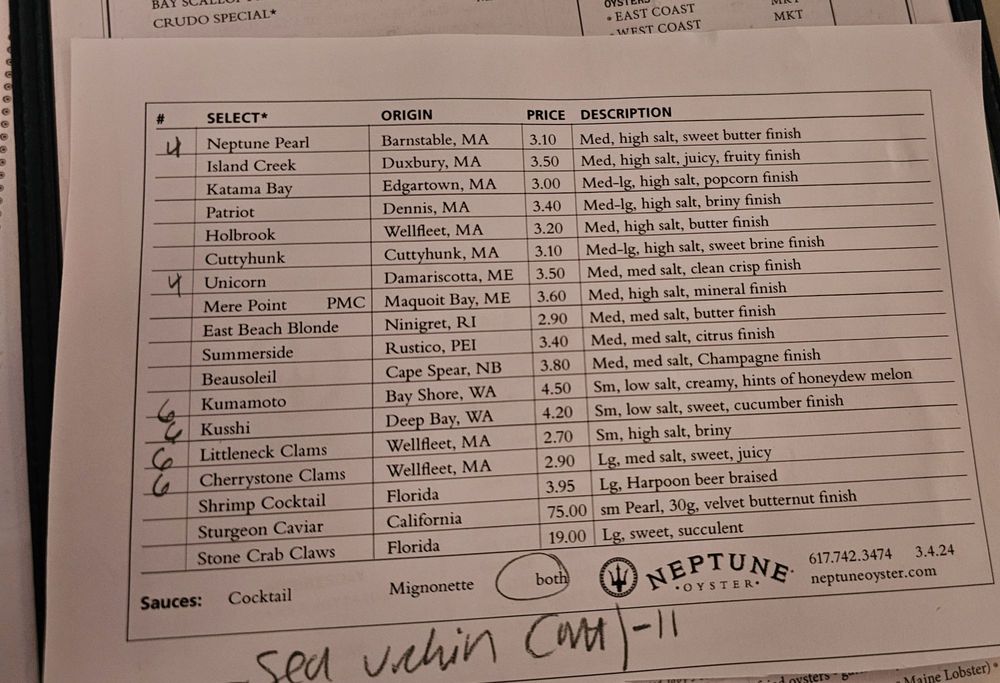 BAY SCALLOP
CRUDO SPECIAL*
OYSTERS
• EAST COAST MKT
• WEST COAST MKT
# SELECT* ORIGIN PRICE DESCRIPTION
4 Neptune Pearl Barnstable, MA 3.10 Med, high salt, sweet butter finish
Island Creek Duxbury, MA 3.50 Med, high salt, juicy, fruity finish
Katama Bay Edgartown, MA 3.00 Med-lg, high salt, popcorn finish
Patriot Dennis, MA 3.40 Med-lg, high salt, briny finish
Holbrook Wellfleet, MA 3.20 Med, high salt, butter finish
Cuttyhunk Cuttyhunk, MA 3.10 Med-lg, high salt, sweet brine finish
4 Unicorn Damariscotta, ME 3.50 Med, med salt, clean crisp finish
Mere Point PMC Maquoit Bay, ME 3.60 Med, high salt, mineral finish
East Beach Blonde Ninigret, RI 2.90 Med, med salt, butter finish
Summerside Rustico, PEI 3.40 Med, med salt, citrus finish
Beausoleil Cape Spear, NB 3.80 Med, med salt, Champagne finish
6 Kumamoto Bay Shore, WA 4.50 Sm, low salt, creamy, hints of honeydew melon
6 Kusshi Deep Bay, WA 4.20 Sm, low salt, sweet, cucumber finish
6 Littleneck Clams Wellfleet, MA 2.70 Sm, high salt, briny
6 Cherrystone Clams Wellfleet, MA 2.90 Lg, med salt, sweet, juicy
Shrimp Cocktail Florida 3.95 Lg, Harpoon beer braised
Sturgeon Caviar California 75.00 sm Pearl, 30g, velvet butternut finish
Stone Crab Claws Florida 19.00 Lg, sweet, succulent
Sauces: Cocktail Mignonette both
NEPTUNE
• OYSTER •
617.742.3474 3.4.24
neptuneoyster.com
sea urchin -11
oysters
Maine Lobster) •